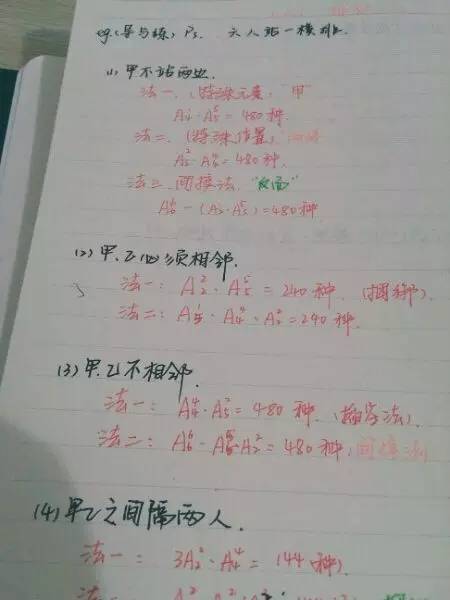 eg(导与练) P3. 六人站一横排.
(1) 甲不站两边.
法一、(特殊元素, 甲
A₄¹·A₅⁵=480种.
法二、(特殊位置)
A₅²·A₄⁴=480种.
法三、间接法, "反面"
A₆⁶-(A₂¹·A₅⁵)=480种
(2) 甲.乙必须相邻.
法一: A₂²·A₅⁵=240种. (捆绑).
法二: A₅¹·A₄⁴·A₂²=240种.
(3) 甲.乙不相邻.
法一: A₄⁴·A₅²=480种. (插空法).
法二: A₆⁶-A₅⁵·A₂²=480种, 间接法
(4) 甲乙之间隔两人.
法一: 3A₂²·A₄⁴=144种).